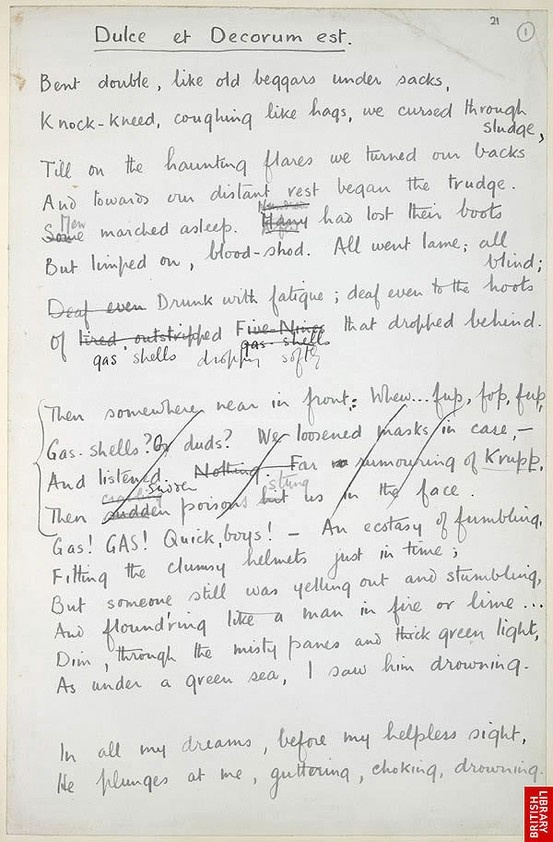 21
1
Dulce et Decorum est.
Bent double, like old beggars under sacks,
Knock-kneed, coughing like hags, we cursed through
sludge,
Till on the haunting flares we turned our backs
And towards our distant rest began the trudge.
Men
Some marched asleep. Many had lost their boots
But limped on, blood-shod. All went lame; all
blind;
Deaf even Drunk with fatigue; deaf even to the hoots
Of tired, outstripped Five-Nines that dropped behind.
gas shells
gas shells dropping softly
Then somewhere near in front: Whew... fup, fop, fup,
Gas-shells? Or duds? We loosened masks in case, —
And listened. Nothing. Far rumouring of Krupp.
stung
Then sudden poisons hit us in the face.
Gas! GAS! Quick, boys! — An ecstasy of fumbling,
Fitting the clumsy helmets just in time;
But someone still was yelling out and stumbling,
And flound'ring like a man in fire or lime...
Dim, through the misty panes and thick green light,
As under a green sea, I saw him drowning.
In all my dreams, before my helpless sight,
He plunges at me, guttering, choking, drowning.
BRITISH
LIBRARY